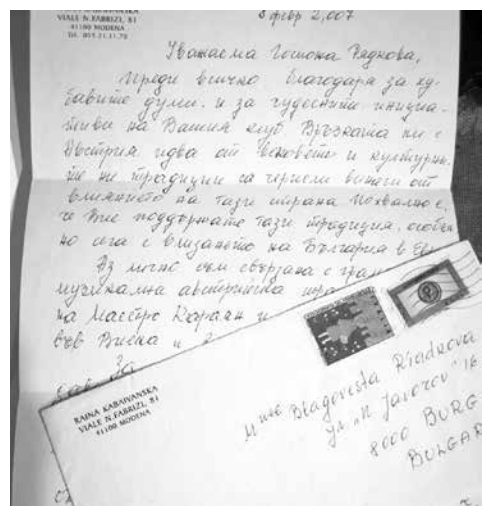 RAINA KABAIVANSKA
VIALE N. FABRIZI, 81
41100 MODENA
5 февр 2,007
Уважаема Госпожа Рядкова,
Преди всичко благодаря за ху-
бавите думи и за чудесните инициа-
тиви на Вашия клуб Връзката ни с
Австрия идва от вековете и културни-
те ни традиции са черпели винаги от
влиянието на тази страна Похвално е,
че Вие поддържате тази традиция, особен-
но сега с влизането на България в Ев
Аз лично съм свързана с
музикална австрийска
на Маестро Караян и
във Виена и
За
RAINA KABAIVANSKA
VIALE N. FABRIZI, 81
41100 MODENA
Mme Blagovesta Riadkova
ул. "П. Javorov" 16
8000 BURG
BULGAR